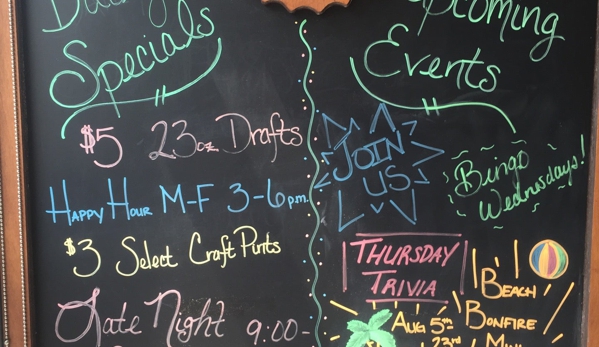 Daily
Specials
$5 23oz Drafts
Happy Hour M-F 3-6 p.m.
$3 Select Craft Pints
Late Night 9:00-
Upcoming
Events
JOIN
US
Bingo
Wednesdays!
THURSDAY
TRIVIA
BEACH
BONFIRE
AUG 5th
23rd